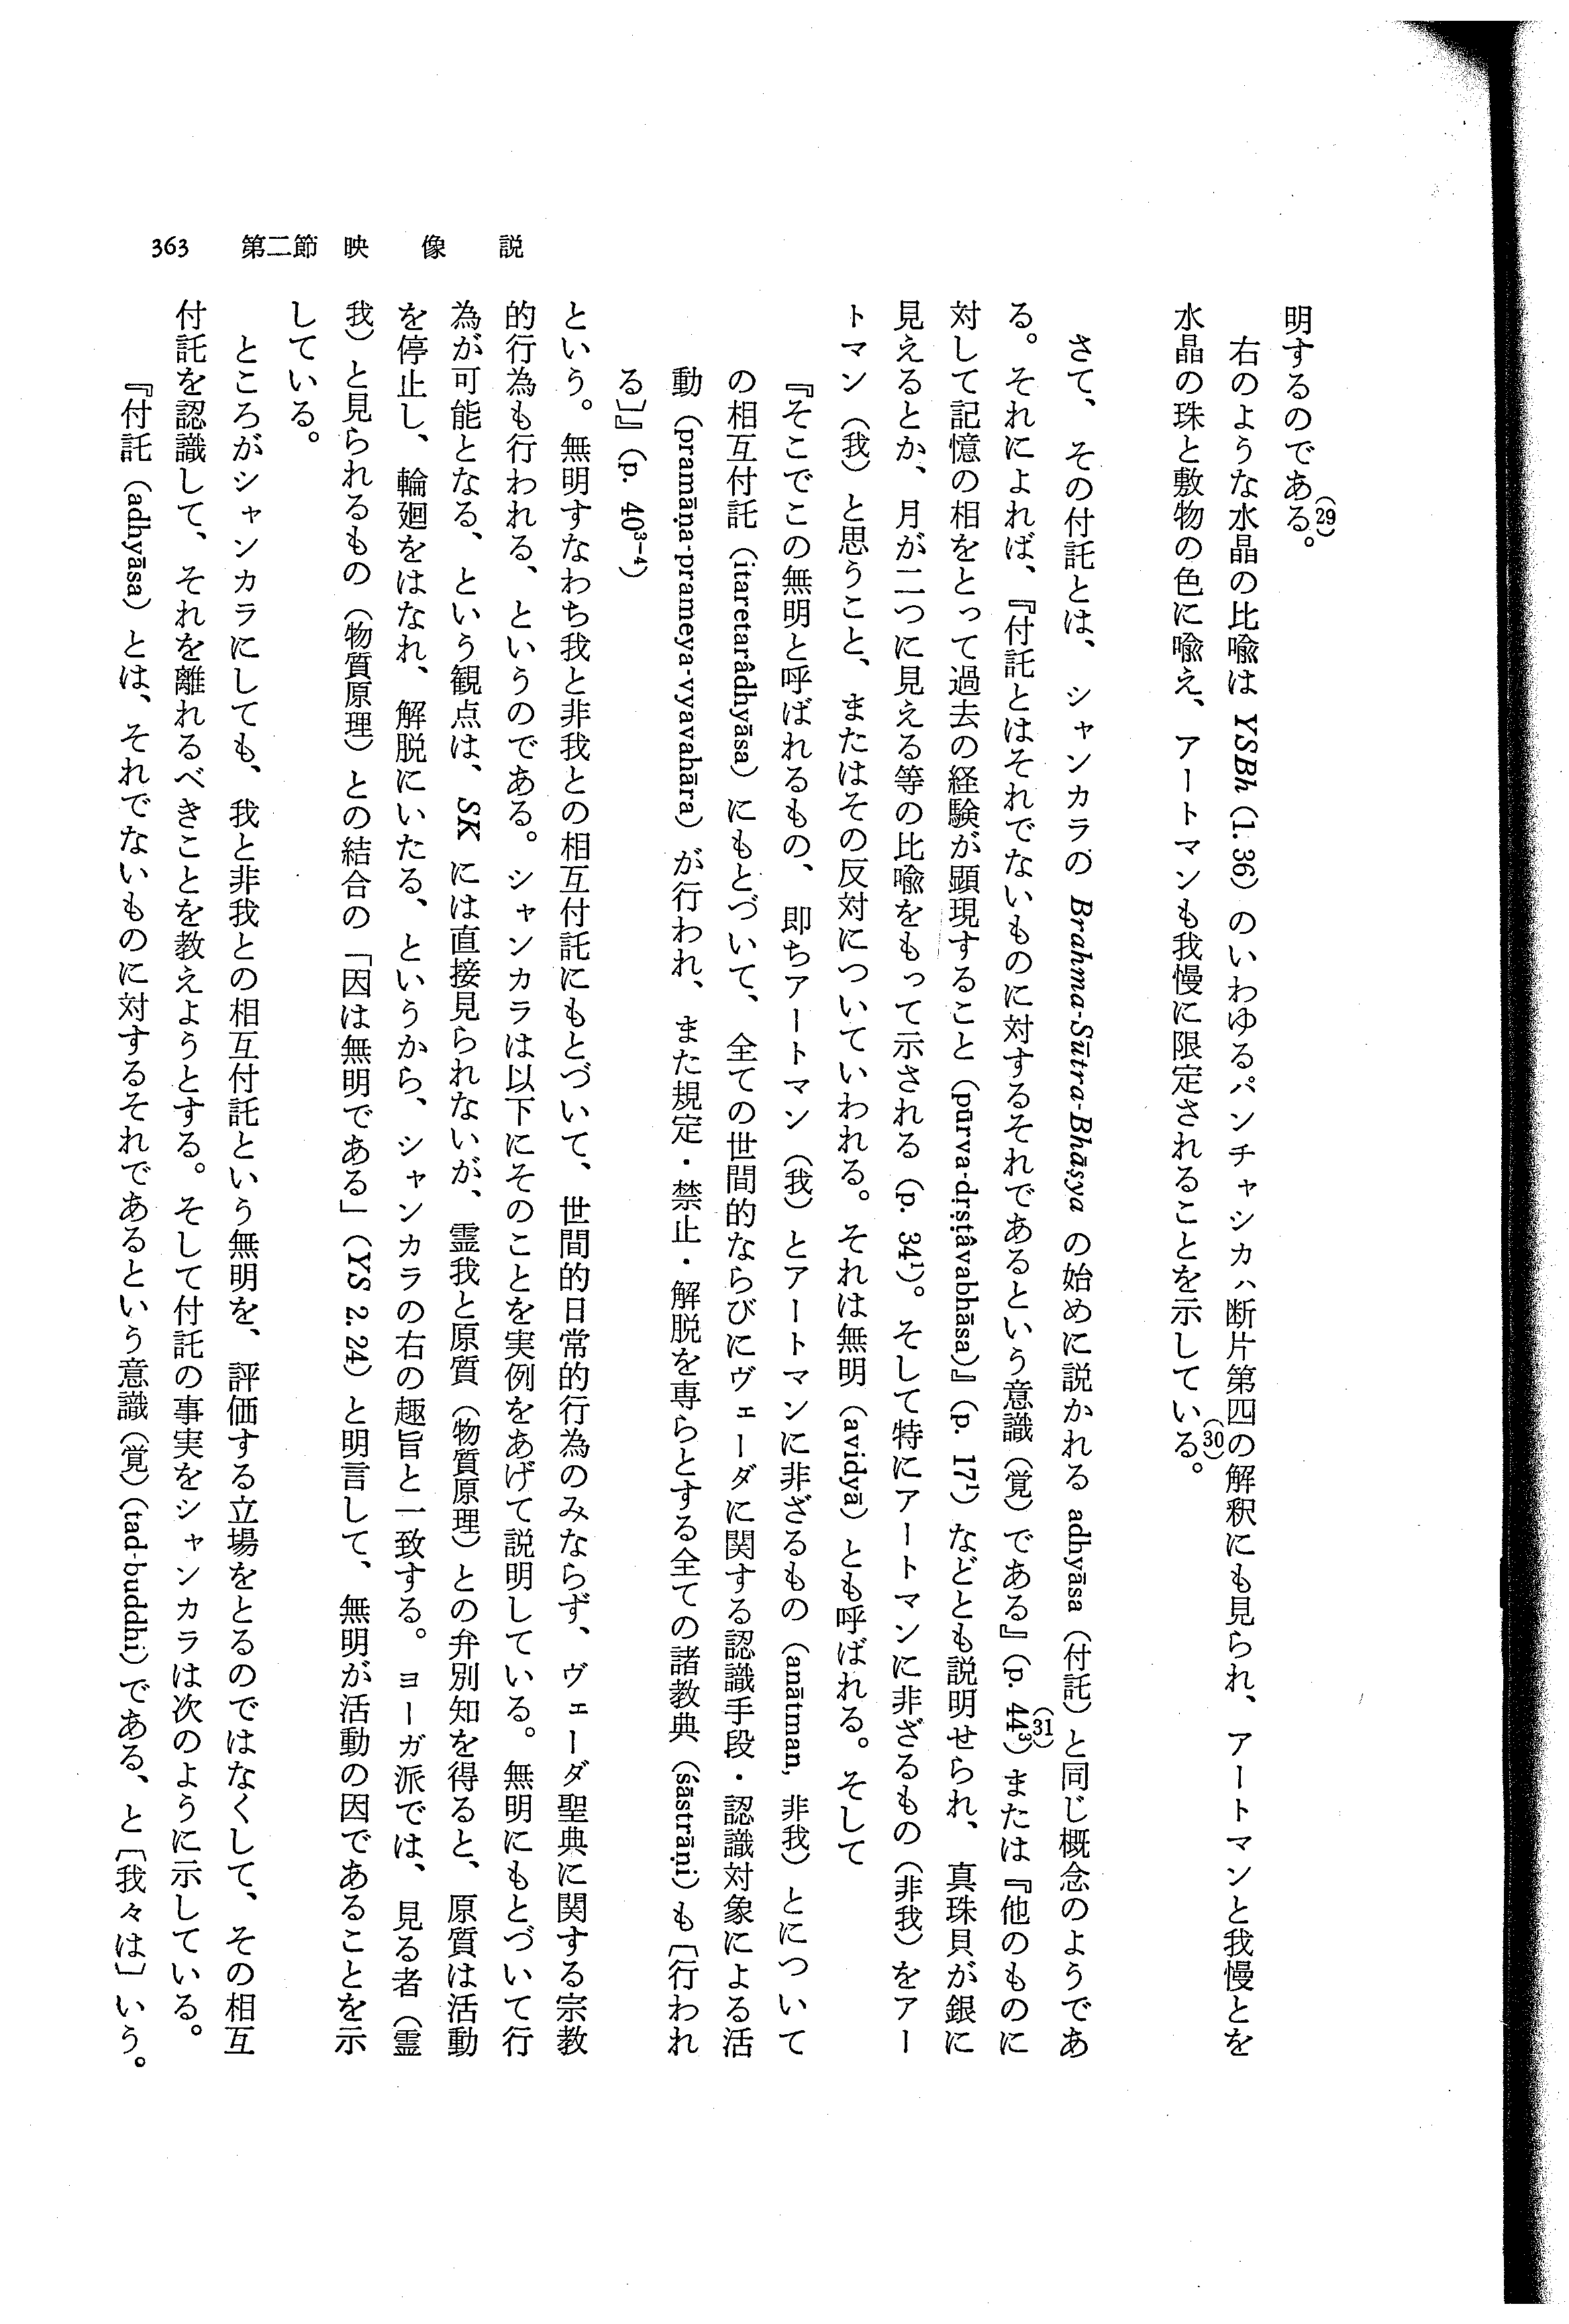 363　第二節　映像説
明するのである。(29)
　右のような水晶の比喩は YSBh (1.36) のいわゆるパンチャシカハ断片第四の解釈にも見られ、アートマンと我慢とを
水晶の珠と敷物の色に喩え、アートマンも我慢に限定されることを示している。(30)
　さて、その付託とは、シャンカラの Brahma-Sūtra-Bhāṣya の始めに説かれる adhyāsa（付託）と同じ概念のようであ
る。それによれば、『付託とはそれでないものに対するそれであるという意識（覚）である』(p. 44³)(31)または『他のものに
対して記憶の相をとって過去の経験が顕現すること (pūrva-dṛṣṭâvabhāsa)』(p. 17¹) などとも説明せられ、真珠貝が銀に
見えるとか、月が二つに見える等の比喩をもって示される (p. 34¹)。そして特にアートマンに非ざるもの（非我）をアー
トマン（我）と思うこと、またはその反対についていわれる。それは無明 (avidyā) とも呼ばれる。そして
　『そこでこの無明と呼ばれるもの、即ちアートマン（我）とアートマンに非ざるもの (anātman, 非我) とについて
　の相互付託 (itaretarâdhyāsa) にもとづいて、全ての世間的ならびにヴェーダに関する認識手段・認識対象による活
　動 (pramāṇa-prameya-vyavahāra) が行われ、また規定・禁止・解脱を専らとする全ての諸教典 (śāstrāṇi) も〔行われ
　る〕』(p. 40³⁻⁴)
という。無明すなわち我と非我との相互付託にもとづいて、世間的日常的行為のみならず、ヴェーダ聖典に関する宗教
的行為も行われる、というのである。シャンカラは以下にそのことを実例をあげて説明している。無明にもとづいて行
為が可能となる、という観点は、SK には直接見られないが、霊我と原質（物質原理）との弁別知を得ると、原質は活動
を停止し、輪廻をはなれ、解脱にいたる、というから、シャンカラの右の趣旨と一致する。ヨーガ派では、見る者（霊
我）と見られるもの（物質原理）との結合の「因は無明である」(YS 2.24) と明言して、無明が活動の因であることを示
している。
　ところがシャンカラにしても、我と非我との相互付託という無明を、評価する立場をとるのではなくして、その相互
付託を認識して、それを離れるべきことを教えようとする。そして付託の事実をシャンカラは次のように示している。
　『付託 (adhyāsa) とは、それでないものに対するそれであるという意識（覚）(tad-buddhi) である、と〔我々は〕いう。